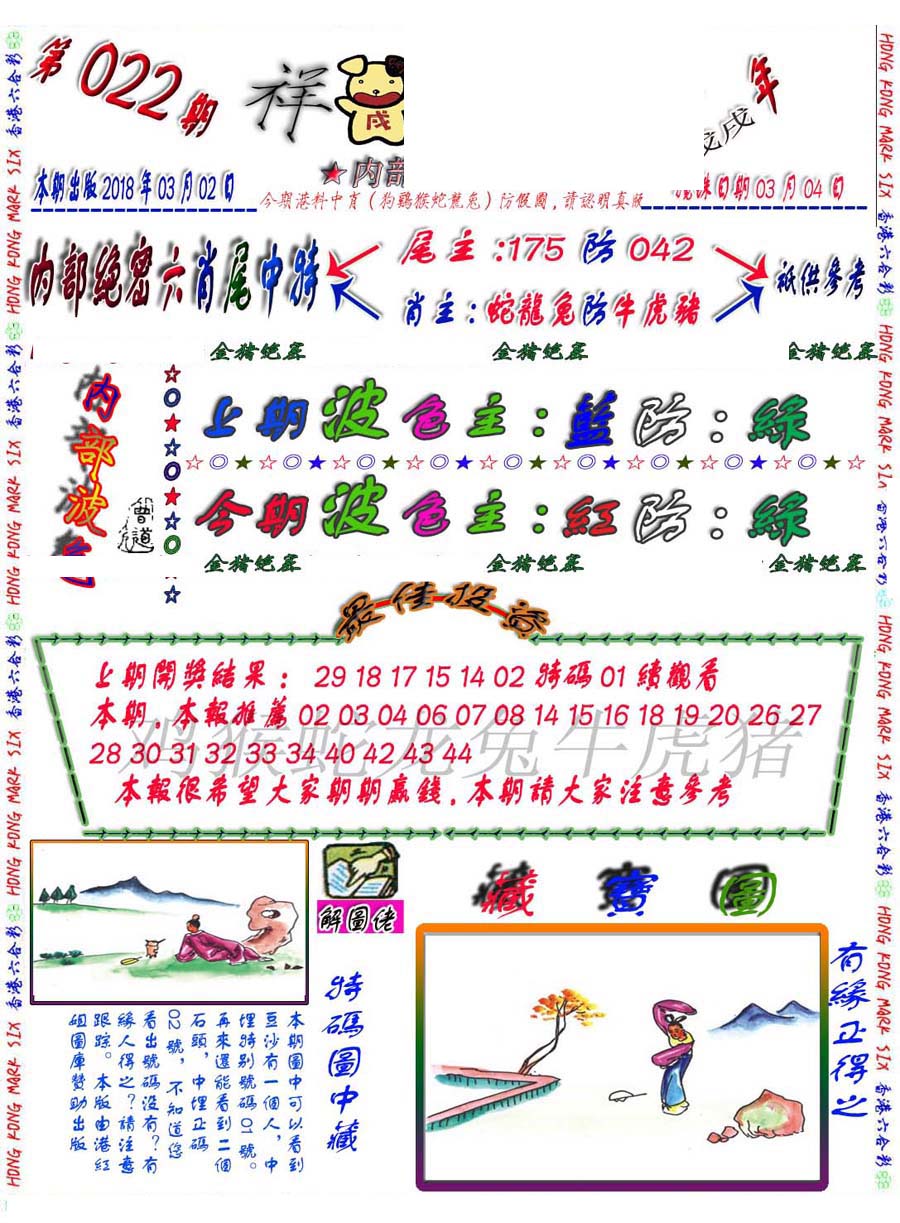 第022期
祥
戌
年
戊戌
★内部
本期出版2018年03月02日
日期03月04日
今期港料中肖(狗鷄猴蛇龍兔)防假圖,請認明真版
内部绝密六肖尾中特
尾主:175防042
肖主:蛇龍兔防牛虎豬
祇供參考
金猪绝密 金猪绝密 金猪绝密
内部波色
曾道
上期波色主:藍防:綠
今期波色主:紅防:綠
金猪绝密 金猪绝密 金猪绝密
最佳投注
上期開獎結果: 29 18 17 15 14 02 特碼 01 續觀看
本期.本報推薦 02 03 04 06 07 08 14 15 16 18 19 20 26 27
28 30 31 32 33 34 40 42 43 44
鸡猴蛇龙兔牛虎猪
本報很希望大家期期贏錢.本期請大家注意參考
解圖佬
藏寶圖
有緣正得之
特碼圖中藏
本期圖中可以看到
豆沙有一個人,中
埋特别號碼01號。
再來還能看到二個
石頭,中埋正碼
02號,不知道您
看出號碼没有?有
緣人得之?請注意
跟踪。本版由港紅
姐圖庫贊助出版
香港六合彩 HONG KONG MARK SIX 香港六合彩 HONG KONG MARK SIX 香港六合彩 HONG KONG MARK SIX 香港六合彩 HONG KONG MARK SIX
HONG KONG MARK SIX 香港六合彩 HONG KONG MARK SIX 香港六合彩 HONG KONG MARK SIX 香港六合彩 HONG KONG MARK SIX 香港六合彩